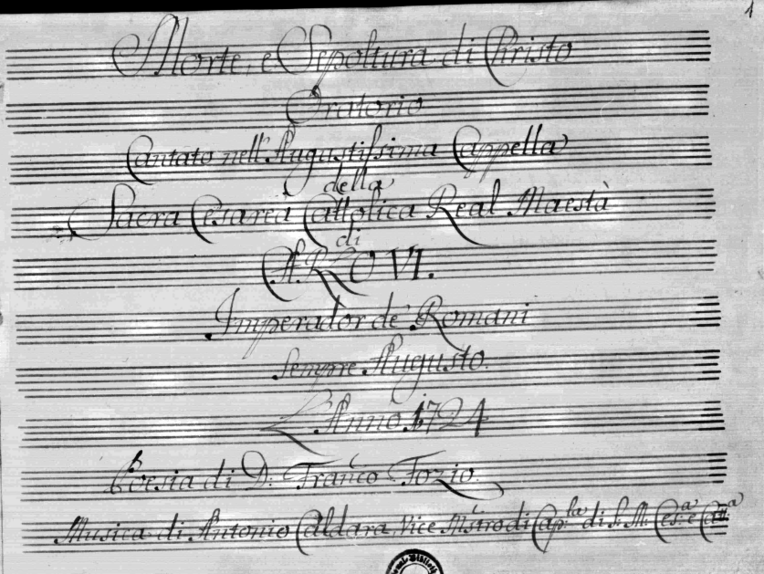 1
Morte, e Sepoltura di Christo
Oratorio
Cantato nell'Augustissima Cappella
della
Sacra Cesarea Cattolica Real Maestà
di
CARLO VI.
Imperador de' Romani
Sempre Augusto.
L'Anno 1724
Poesia di D. Franco Fozio.
Musica di Antonio Caldara, Vice Mstro di Cap.la di S. M. Ces.a e Catt.a